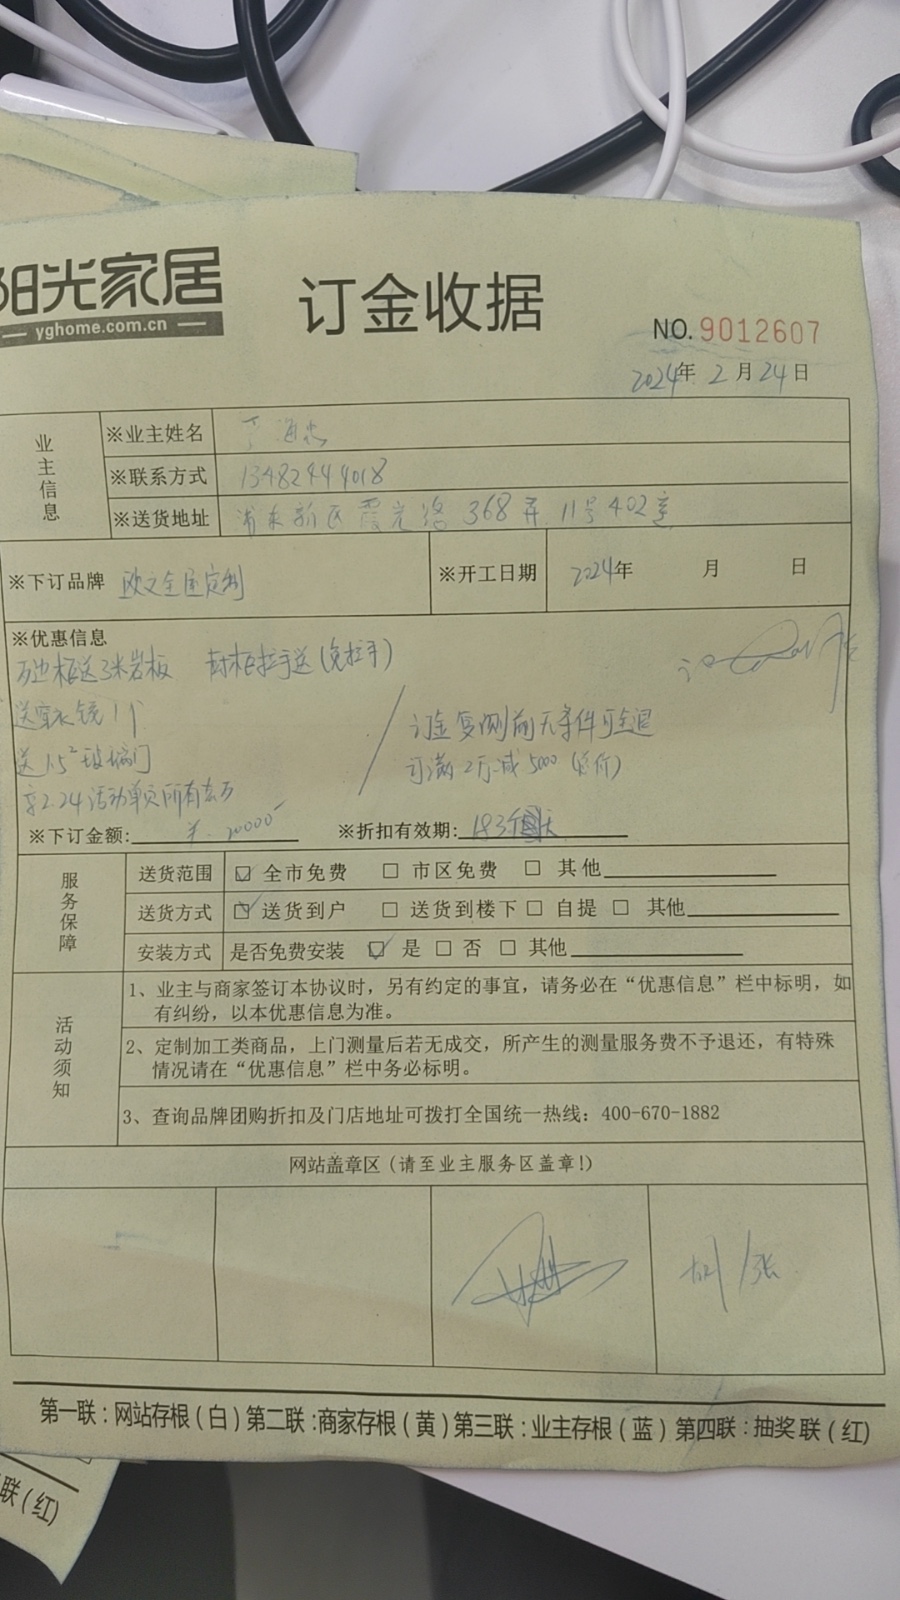 阳光家居
yghome.com.cn
订金收据
NO.9012607
2024年2月24日
业主信息
※业主姓名
※联系方式 13482444018
※送货地址 浦东新区霞光路368弄11号402室
※下订品牌 欧之全屋定制
※开工日期 2024年 月 日
※优惠信息
送3米岩板 拉手送(免拉手)
送穿衣镜1个
送1.5²玻璃门
享2.24活动单页所有
订金复测前无条件可全退
可满2万减5000(总价)
※下订金额: ¥.20000 ※折扣有效期: 183天
服务保障
送货范围 ☑全市免费 □市区免费 □其他
送货方式 ☑送货到户 □送货到楼下 □自提 □其他
安装方式 是否免费安装 ☑是 □否 □其他
活动须知
1、业主与商家签订本协议时，另有约定的事宜，请务必在“优惠信息”栏中标明，如
有纠纷，以本优惠信息为准。
2、定制加工类商品，上门测量后若无成交，所产生的测量服务费不予退还，有特殊
情况请在“优惠信息”栏中务必标明。
3、查询品牌团购折扣及门店地址可拨打全国统一热线：400-670-1882
网站盖章区(请至业主服务区盖章!)
胡/张
第一联:网站存根(白)第二联:商家存根(黄)第三联:业主存根(蓝)第四联:抽奖联(红)
联(红)